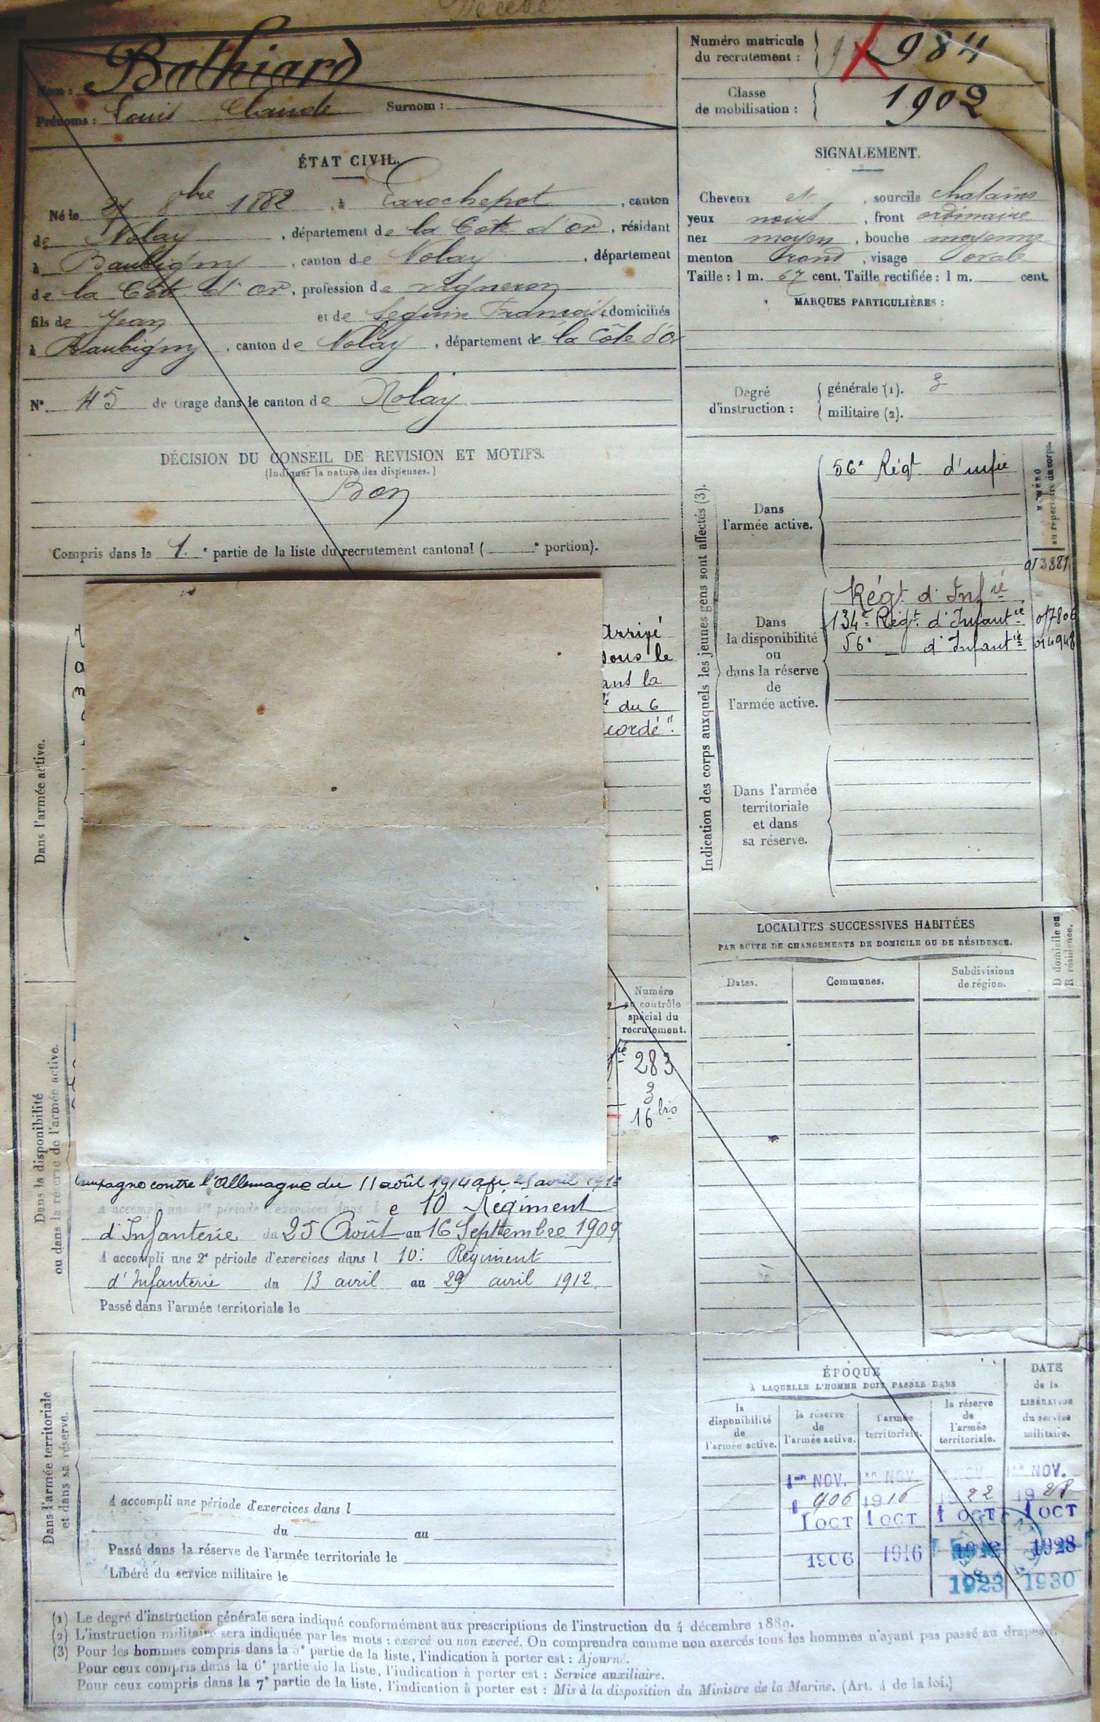 Décédé
Nom : Bathiard
Prénoms : Louis Claude Surnom :
Numéro matricule
du recrutement : 984
Classe
de mobilisation : 1902
ÉTAT CIVIL.
Né le 27 8bre 1882, à Larochepot, canton
de Nolay, département de la Côte d'Or, résidant
à Baubigny, canton de Nolay, département
de la Côte d'Or, profession de vigneron
fils de Jean et de Seguin Françoise, domiciliés
à Baubigny, canton de Nolay, département de la Côte d'Or
N° 45 de tirage dans le canton de Nolay
SIGNALEMENT.
Cheveux et, sourcils chatains
yeux noirs, front ordinaire
nez moyen, bouche moyenne
menton rond, visage ovale
Taille : 1 m. 67 cent. Taille rectifiée : 1 m. cent.
MARQUES PARTICULIÈRES :
Degré
d'instruction :
générale (1). 3
militaire (2).
DÉCISION DU CONSEIL DE REVISION ET MOTIFS.
(Indiquer la nature des dispenses.)
Bon
Compris dans la 1.e partie de la liste du recrutement cantonal ( e portion).
Indication des corps auxquels les jeunes gens sont affectés (3).
NUMÉRO
au répertoire du corps.
Dans
l'armée active.
56e Régt d'infie
Dans
la disponibilité
ou
dans la réserve
de
l'armée active.
Régt d'Infie
134e Régt d'Infantie
56e _ d'Infantie
Dans l'armée
territoriale
et dans
sa réserve.
Dans l'armée active.
Arrivé
sous le
ant la
du 6
cordé".
LOCALITÉS SUCCESSIVES HABITÉES
PAR SUITE DE CHANGEMENTS DE DOMICILE OU DE RÉSIDENCE.
D domicile ou
R résidence.
Dates.
Communes.
Subdivisions
de région.
Dans la disponibilité
ou dans la réserve de l'armée active.
Numéro
au contrôle
spécial du
recrutement.
283
3
16 bis
Campagne contre l'Allemagne du 11 août 1914 au 25 avril
A accompli une 1re période d'exercices dans l e 10 Régiment
d'Infanterie du 25 Août au 16 Septembre 1909
A accompli une 2e période d'exercices dans l 10e Régiment
d'Infanterie du 13 avril au 29 avril 1912
Passé dans l'armée territoriale le
Dans l'armée territoriale
et dans sa réserve.
A accompli une période d'exercices dans l
du au
Passé dans la réserve de l'armée territoriale le
Libéré du service militaire le
ÉPOQUE
À LAQUELLE L'HOMME DOIT PASSER DANS
DATE
de la
LIBÉRATION
du service
militaire.
la
disponibilité
de
l'armée active.
la réserve
de
l'armée active.
l'armée
territoriale.
la réserve
de
l'armée
territoriale.
1er NOV. 1er NOV. 1er NOV.
1906 1916 1922 1928
1 OCT 1 OCT 1 OCT 1 OCT
1906 1916 1928
1923 1930
(1) Le degré d'instruction générale sera indiqué conformément aux prescriptions de l'instruction du 4 décembre 1889.
(2) L'instruction militaire sera indiquée par les mots : exercé ou non exercé. On comprendra comme non exercés tous les hommes n'ayant pas passé au drapeau.
(3) Pour les hommes compris dans la 5e partie de la liste, l'indication à porter est : Ajourné.
Pour ceux compris dans la 6e partie de la liste, l'indication à porter est : Service auxiliaire.
Pour ceux compris dans la 7e partie de la liste, l'indication à porter est : Mis à la disposition du Ministre de la Marine. (Art. 4 de la loi.)